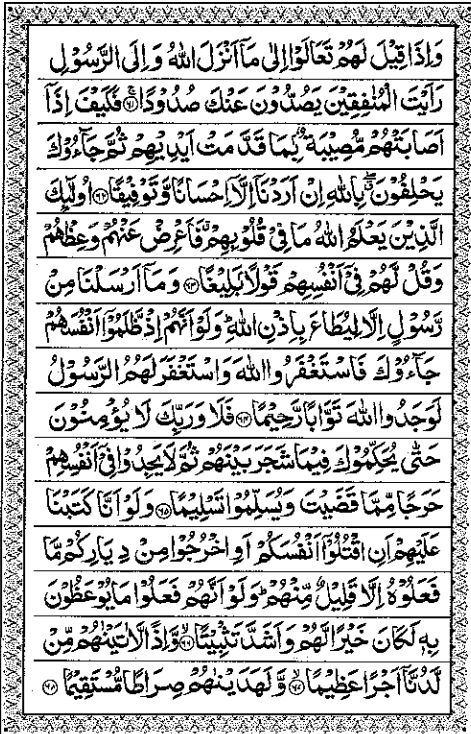 وَاِذَا قِيْلَ لَهُمْ تَعَالَوْا اِلٰى مَآ اَنْزَلَ اللّٰهُ وَ اِلَى الرَّسُوْلِ
رَاَيْتَ الْمُنٰفِقِيْنَ يَصُدُّوْنَ عَنْكَ صُدُوْدًا ۚ﴿۶۱﴾ فَكَيْفَ اِذَآ
اَصَابَتْهُمْ مُّصِيْبَةٌۢ بِمَا قَدَّمَتْ اَيْدِيْهِمْ ثُمَّ جَآءُوْكَ
يَحْلِفُوْنَ ۖ بِاللّٰهِ اِنْ اَرَدْنَاۤ اِلَّاۤ اِحْسَانًا وَّ تَوْفِيْقًا ﴿۶۲﴾ اُولٰٓئِكَ
الَّذِيْنَ يَعْلَمُ اللّٰهُ مَا فِيْ قُلُوْبِهِمْ ۗ فَاَعْرِضْ عَنْهُمْ وَعِظْهُمْ
وَقُلْ لَّهُمْ فِيْۤ اَنْفُسِهِمْ قَوْلًاۢ بَلِيْغًا ﴿۶۳﴾ وَمَاۤ اَرْسَلْنَا مِنْ
رَّسُوْلٍ اِلَّا لِيُطَاعَ بِاِذْنِ اللّٰهِ ؕ وَلَوْ اَنَّهُمْ اِذْ ظَّلَمُوْۤا اَنْفُسَهُمْ
جَآءُوْكَ فَاسْتَغْفَرُوا اللّٰهَ وَاسْتَغْفَرَ لَهُمُ الرَّسُوْلُ
لَوَجَدُوا اللّٰهَ تَوَّابًا رَّحِيْمًا ﴿۶۴﴾ فَلَا وَرَبِّكَ لَا يُؤْمِنُوْنَ
حَتّٰى يُحَكِّمُوْكَ فِيْمَا شَجَرَ بَيْنَهُمْ ثُمَّ لَا يَجِدُوْا فِيْۤ اَنْفُسِهِمْ
حَرَجًا مِّمَّا قَضَيْتَ وَيُسَلِّمُوْا تَسْلِيْمًا ﴿۶۵﴾ وَلَوْ اَنَّا كَتَبْنَا
عَلَيْهِمْ اَنِ اقْتُلُوْۤا اَنْفُسَكُمْ اَوِ اخْرُجُوْا مِنْ دِيَارِكُمْ مَّا
فَعَلُوْهُ اِلَّا قَلِيْلٌ مِّنْهُمْ ؕ وَلَوْ اَنَّهُمْ فَعَلُوْا مَا يُوْعَظُوْنَ
بِهٖ لَكَانَ خَيْرًا لَّهُمْ وَاَشَدَّ تَثْبِيْتًا ۙ﴿۶۶﴾ وَّاِذًا لَّاٰتَيْنٰهُمْ مِّنْ
لَّدُنَّاۤ اَجْرًا عَظِيْمًا ۙ﴿۶۷﴾ وَّلَهَدَيْنٰهُمْ صِرَاطًا مُّسْتَقِيْمًا ﴿۶۸﴾